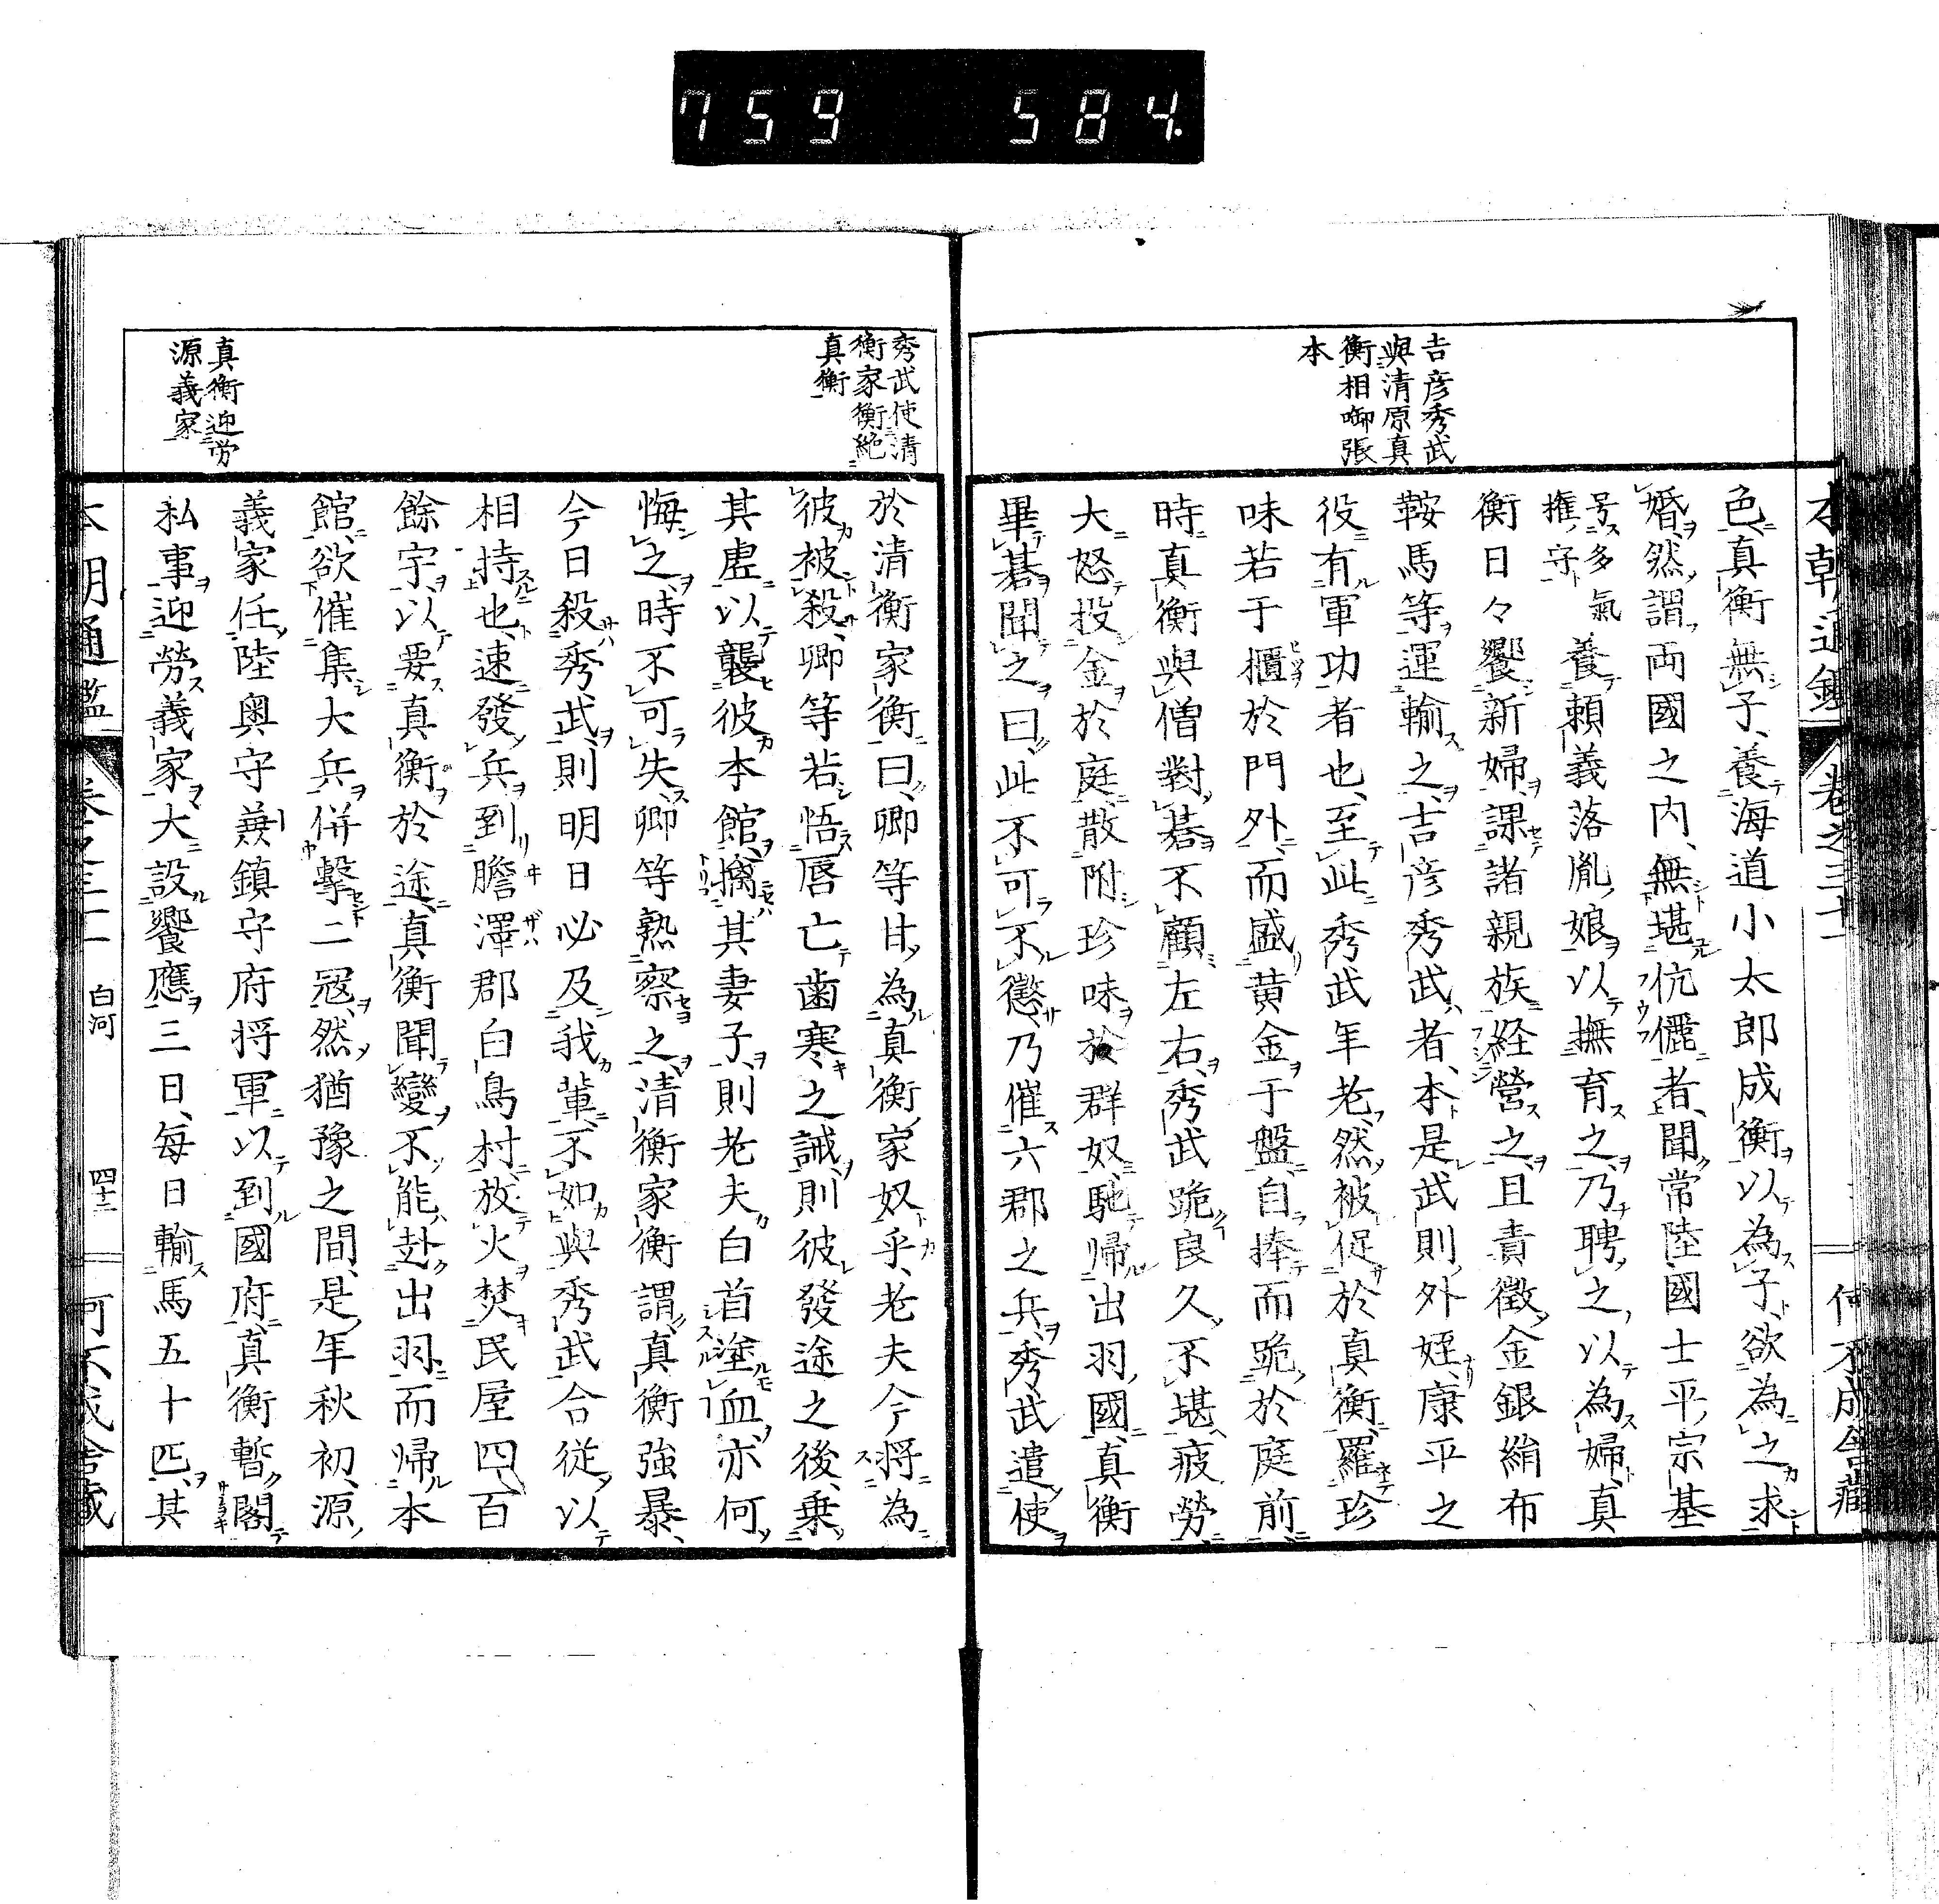 759 584.
吉彦秀武
與清原真
衡相啣張
本
色真衡無子養海道小太郎成衡以為子欲為之求
婚然謂両國之内無堪伉儷者聞常陸國士平宗基
号多氣
権守
養頼義落胤娘以撫育之乃聘之以為婦真
衡日々饗新婦課諸親族経營之且責徴金銀絹布
鞍馬等運輸之吉彦秀武者本是武則外姪康平之
役有軍功者也至此秀武年老然被促於真衡羅珍
味若干櫃於門外而盛黄金于盤自捧而跪於庭前
時真衡與僧對碁不顧左右秀武跪良久不堪疲勞
大怒投金於庭散附珍味於群奴馳帰出羽國真衡
畢碁聞之曰此不可不懲乃催六郡之兵秀武遣使
秀武使清
衡家衡絶
真衡
真衡迎労
源義家
於清衡家衡曰卿等甘為真衡家奴乎老夫今将為
彼被殺卿等若悟唇亡歯寒之誡則彼發途之後乗
其虚以襲彼本館擒其妻子則老夫白首塗血亦何
悔之時不可失卿等熟察之清衡家衡謂真衡強暴
今日殺秀武則明日必及我輩不如與秀武合従以
相持也速發兵到膽澤郡白鳥村放火焚民屋四百
餘宇以要真衡於途真衡聞變不能赴出羽而帰本
館欲催集大兵併撃二冦然猶豫之間是年秋初源
義家任陸奥守兼鎮守府将軍以到國府真衡暫閣
私事迎勞義家大設饗應三日毎日輸馬五十匹其
白河
四十二